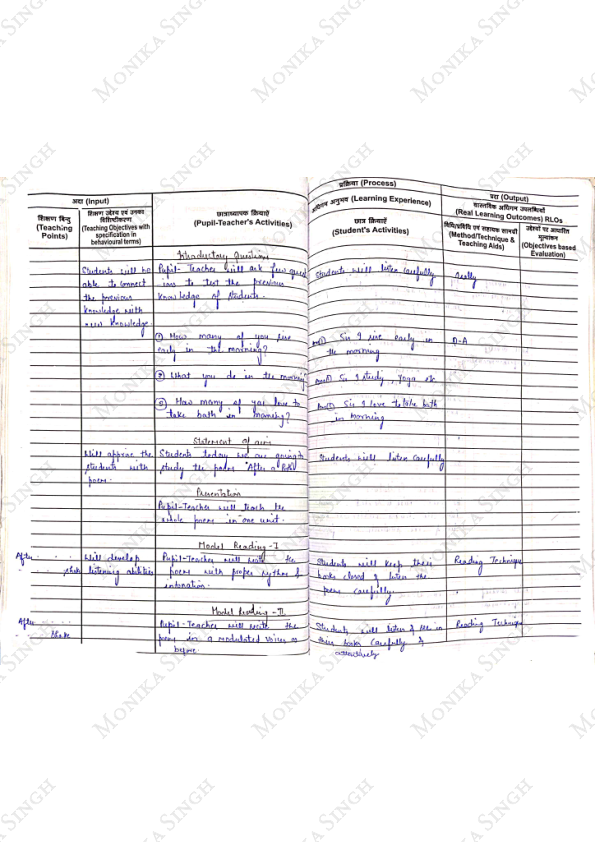 MONIKA SINGH
अदा (Input)
प्रक्रिया (Process)
प्रदा (Output)
शिक्षण बिन्दु
(Teaching
Points)
शिक्षण उद्देश्य एवं उनका
विशिष्टीकरण
(Teaching Objectives with
specification in
behavioural terms)
छात्राध्यापक क्रियाऐं
(Pupil-Teacher's Activities)
अधिगम अनुभव (Learning Experience)
छात्र क्रियाऐं
(Student's Activities)
वास्तविक अधिगम उपलब्धियाँ
(Real Learning Outcomes) RLOs
विधि/प्रविधि एवं सहायक सामग्री
(Method/Technique &
Teaching Aids)
उद्देश्यों पर आधारित
मूल्यांकन
(Objectives based
Evaluation)
Introductory Questions
Students will be
able to connect
the previous
knowledge with
new knowledge.
Pupil-Teacher will ask few quest
ions to test the previous
knowledge of students.
Students will listen carefully
① How many of you rise
early in the morning?
Sir I rise early in
the morning
D-A
② What you do in the morning
Sir I study, Yoga etc
③ How many of you love to
take bath in morning?
Sir I love to take bath
in morning
Statement of aim
Will approve the
students with
poem.
Students today we are going to
study the poem "After a
Students will listen carefully
Presentation
Pupil-Teacher will teach the
whole poem in one unit.
Model Reading-I
After
Will develop
listening abilities
Pupil-Teacher will the
poem with proper rythm &
intonation.
Students will keep their
books closed & listen the
poem carefully.
Reading Technique
Model Reading-II
After
Pupil-Teacher will the
poem in a modulated voice as
before.
Students will listen & see in
their books carefully &
attentively
Reading Technique